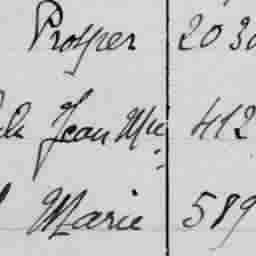 Prosper 2030
Jean Mie 412
Marie 589